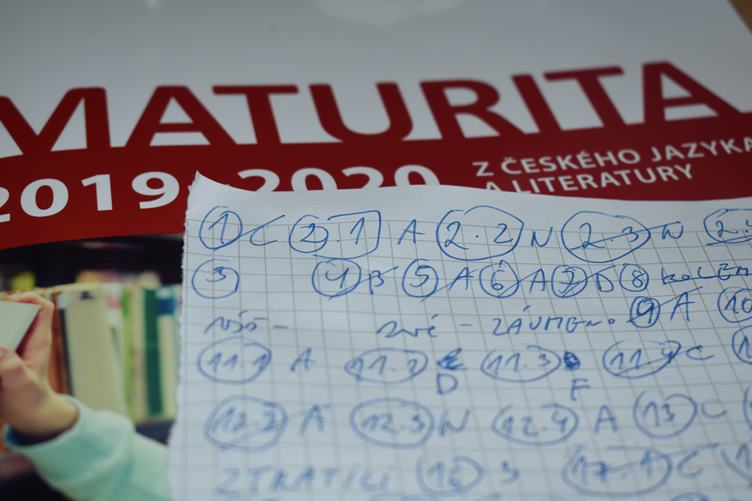 MATURITA
2019 2020
Z ČESKÉHO JAZYKA
A LITERATURY
1 C 2.1 A 2.2 N 2.3 N 2.
3 4 B 5 A 6 A 7 D 8
ZÁJMENO 9 A 10
11.1 A 11.2 D 11.3 F 11.4 C
12.2 A 12.3 N 12.4 A 13 C
ZTRATILI 16 17.1 C